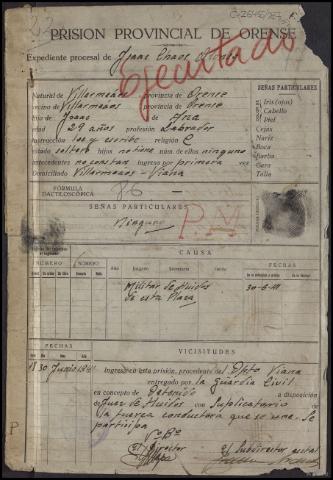 PRISION PROVINCIAL DE ORENSE
Expediente procesal de Isaac Chaos
Ejecutado
SEÑAS PARTICULARES
Natural de Villarmeao provincia de Orense
Vecino de Villarmeao provincia de Orense
Hijo de Isaac y de Ana
edad 29 años profesión Labrador
Instrucción lee y escribe religión C
Estado soltero hijos no tiene núm. de ellos ninguno
antecedentes no constan Ingresó por primera vez
Domiciliado Villarmeao - Viana
Iris (ojos)
Cabello
Piel
Cejas
Nariz
Boca
Barba
Cara
Talla
FÓRMULA
DACTILOSCÓPICA
SEÑAS PARTICULARES
Ninguna
P.M
CAUSA
FECHAS
NÚMERO
NÚMERO
Año
Juzgado
Secretaría
Delito
Militar de Huidos
de esta Plaza
30-6-41
FECHAS
VICISITUDES
30 Junio 1941
Ingresa en esta prisión, procedente del Dpto Viana
entregado por la Guardia Civil
en concepto de Detenido a disposición
de Juez de Huidos con Suplicatorio de
la fuerza conductora que se une. Se
participa
Vº Bº
El Director
El Subdirector
P